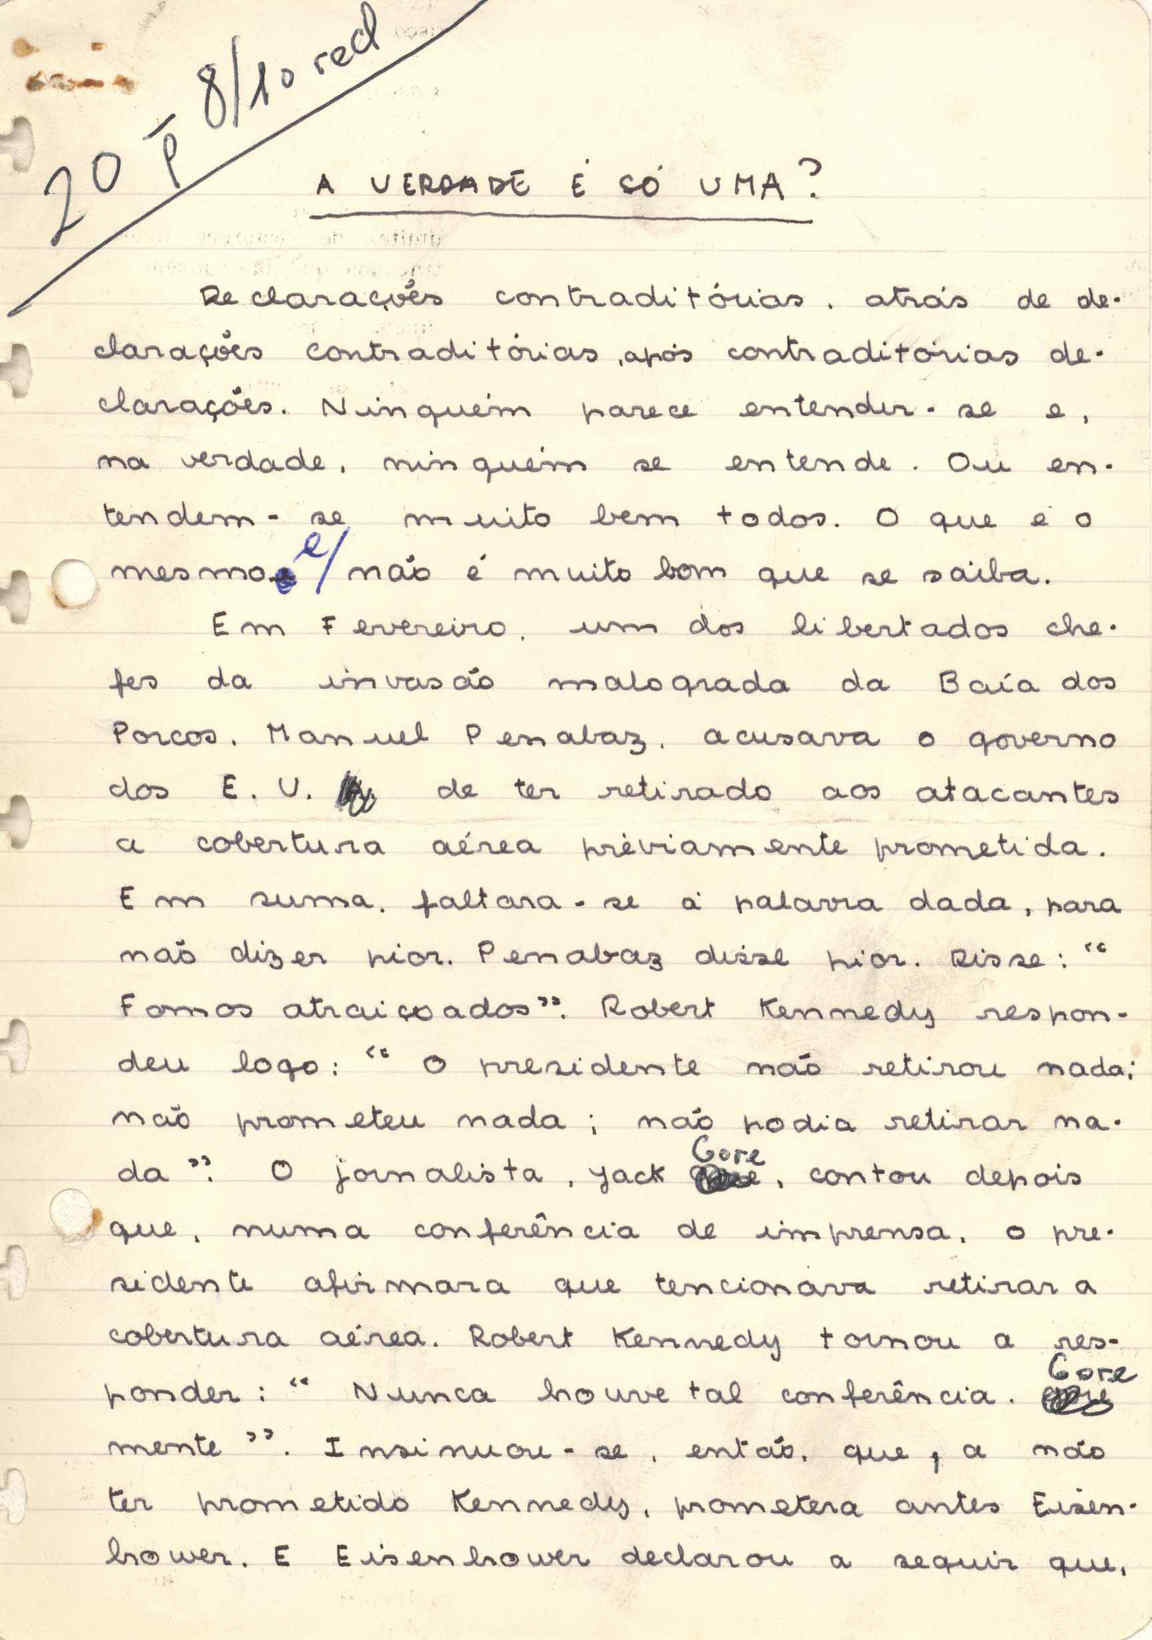 20 p 8/10 red
A VERDADE É SÓ UMA?
Declarações contraditórias, atrás de de-
clarações contraditórias, após contraditórias de-
clarações. Ninguém parece entender-se e,
na verdade, ninguém se entende. Ou en-
tendem-se muito bem todos. O que é o
mesmo e/ não é muito bom que se saiba.
Em Fevereiro, um dos libertados che-
fes da invasão malograda da Baía dos
Porcos, Manuel Penabaz, acusava o governo
dos E. U. de ter retirado aos atacantes
a cobertura aérea prèviamente prometida.
Em suma, faltara-se à palavra dada, para
não dizer pior. Penabaz disse pior. Disse: "
Fomos atraiçoados". Robert Kennedy respon-
deu logo: " O presidente não retirou nada;
não prometeu nada; não podia retirar na-
da". O jornalista, Jack Gore, contou depois
que, numa conferência de imprensa, o pre-
sidente afirmara que tencionava retirar a
cobertura aérea. Robert Kennedy tornou a res-
ponder: " Nunca houve tal conferência. Gore
mente". Insinuou-se, então, que, a não
ter prometido Kennedy, prometera antes Eisen-
hower. E Eisenhower declarou a seguir que,